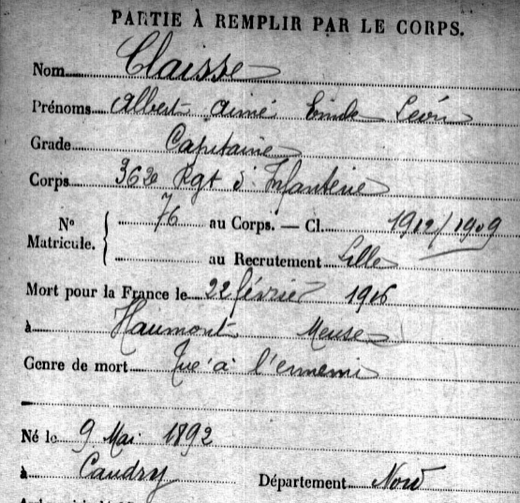 PARTIE À REMPLIR PAR LE CORPS.
Nom Claisse
Prénoms Albert Aimé Emile Léon
Grade Capitaine
Corps 362e Rgt d'Infanterie
N° Matricule. 76 au Corps. — Cl. 1912/1909
au Recrutement Lille
Mort pour la France le 22 février 1916
à Haumont Meuse
Genre de mort Tué à l'ennemi
Né le 9 Mai 1892
à Caudry Département Nord